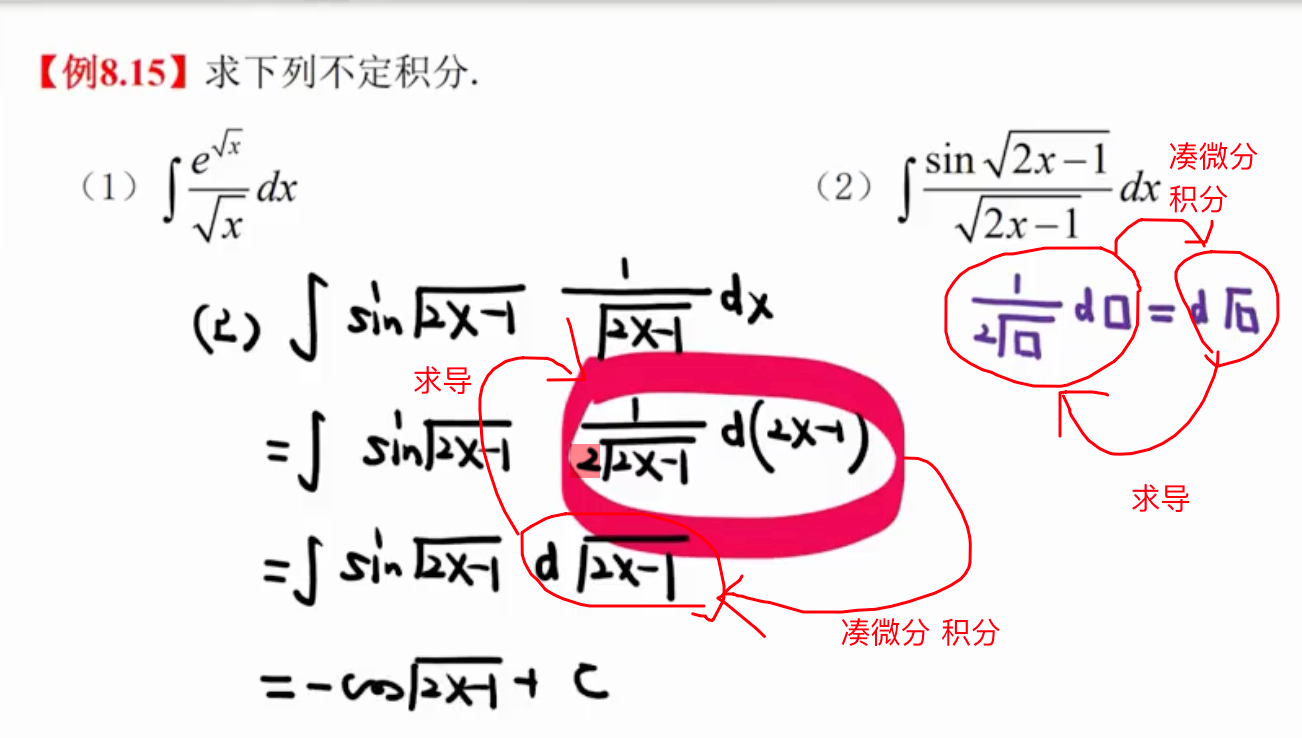 【例8.15】求下列不定积分.
(1) ∫ e^√x / √x dx
(2) ∫ sin√(2x−1) / √(2x−1) dx
凑微分
积分
1/(2√□) d□ = d√□
(2) ∫ sin√(2x-1) 1/√(2x-1) dx
求导
=∫ sin√(2x-1) 1/(2√(2x-1)) d(2x-1)
求导
=∫ sin√(2x-1) d√(2x-1)
凑微分 积分
=-cos√(2x-1) + C